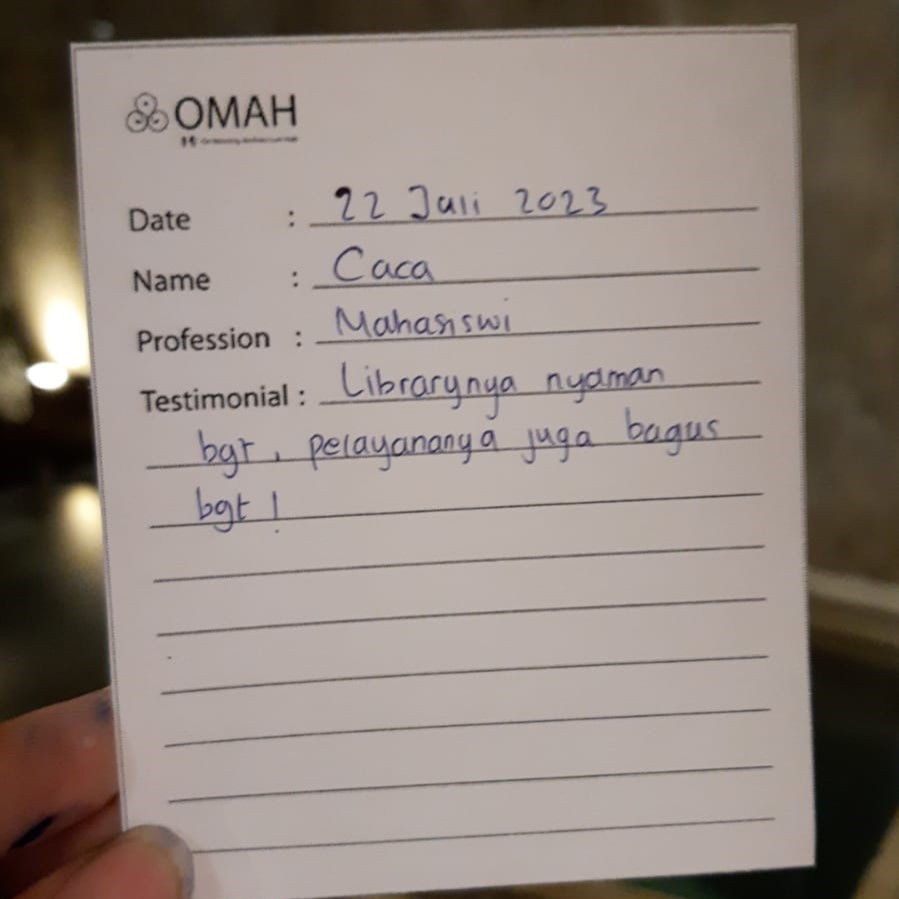 OMAH
Date : 22 Juli 2023
Name : Caca
Profession : Mahasiswi
Testimonial : Librarynya nyaman
bgt, pelayananya juga bagus
bgt !